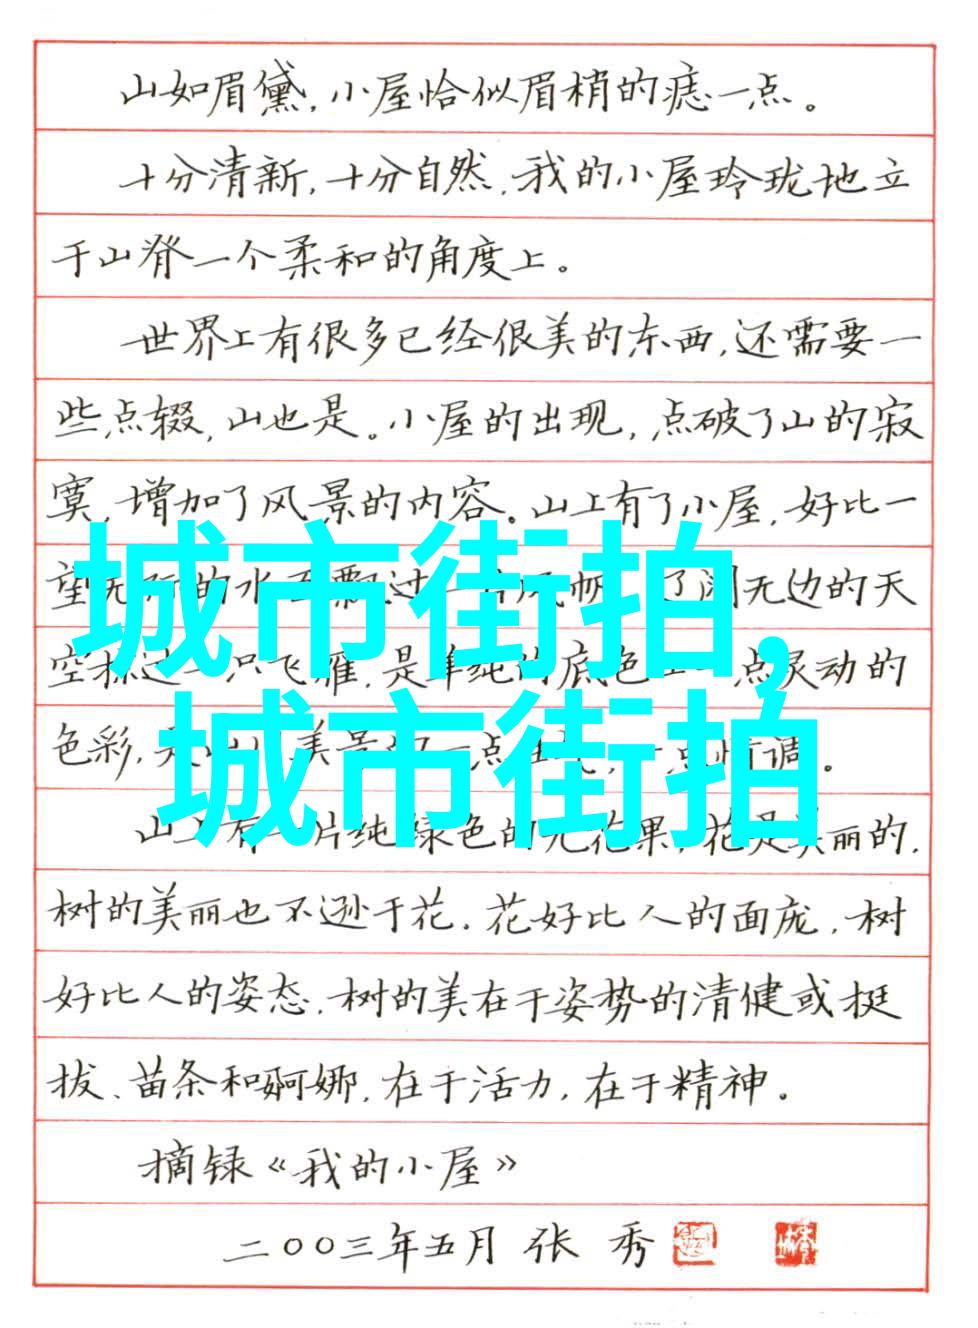 山如眉黛,小屋恰似眉梢的痣一点。
十分清新,十分自然,我的小屋玲珑地立
于山脊一个柔和的角度上。
世界上有很多已经很美的东西,还需要一
些点缀,山也是。小屋的出现,点破了山的寂
寞,增加了风景的内容。山上有了小屋,好比一
望无 的水 飘过 风帆 了 阔无边的天
空 过 只飞雁,是单纯的底色 点灵动的
色彩, 美景 一点 情调。
城市街拍,
城市街拍
山上有 片纯绿色的无花果,花是美丽的,
树的美丽也不逊于花。花好比人的面庞,树
好比人的姿态。树的美在于姿势的清健或挺
拔、苗条和婀娜,在于活力,在于精神。
摘录《我的小屋》
二〇〇三年五月 张 秀